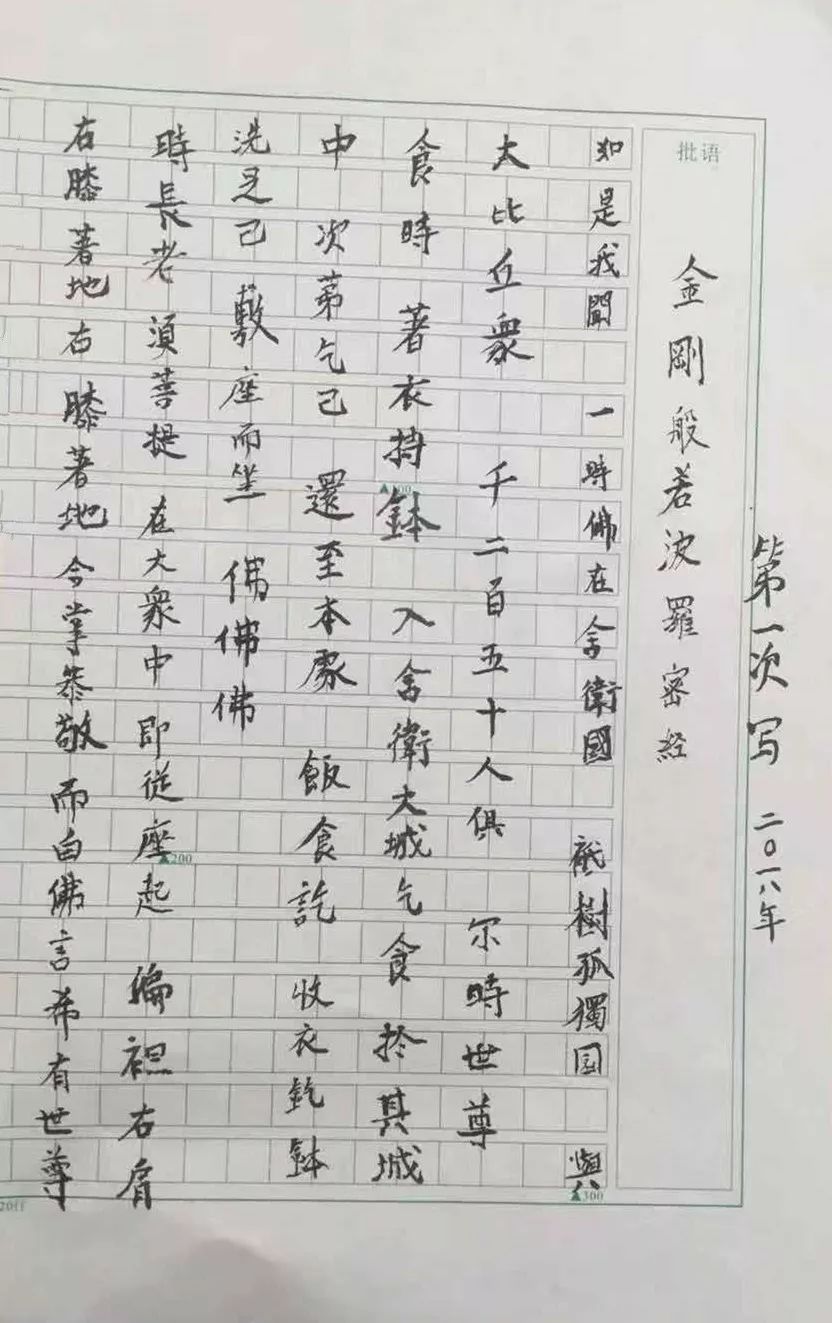 第一次写 二〇一八年
批语
金剛般若波羅密经
如是我聞 一時佛在舍衛國 祇樹孤獨园 與
大比丘衆 千二百五十人俱 尔時世尊
食時 著衣持鉢 入舍衛大城乞食 於其城
中 次第乞己 還至本處 飯食訖 收衣鉢
洗足己 敷座而坐 佛佛佛
時長老須菩提 在大衆中 即從座起 偏袒右肩
右膝著地右膝著地 合掌恭敬 而白佛言希有世尊
▲100
▲200
▲300